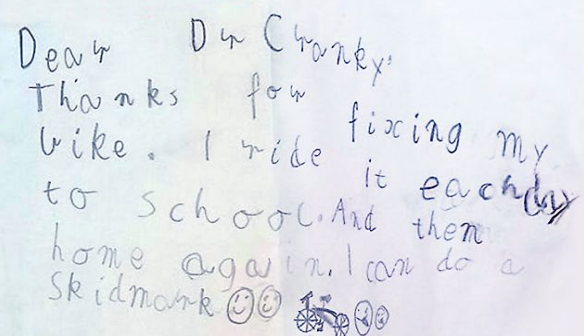 Dear Dr Cranky.
Thanks for fixing my
bike. I ride it each day
to school. And then
home again. I can do a
Skidmark